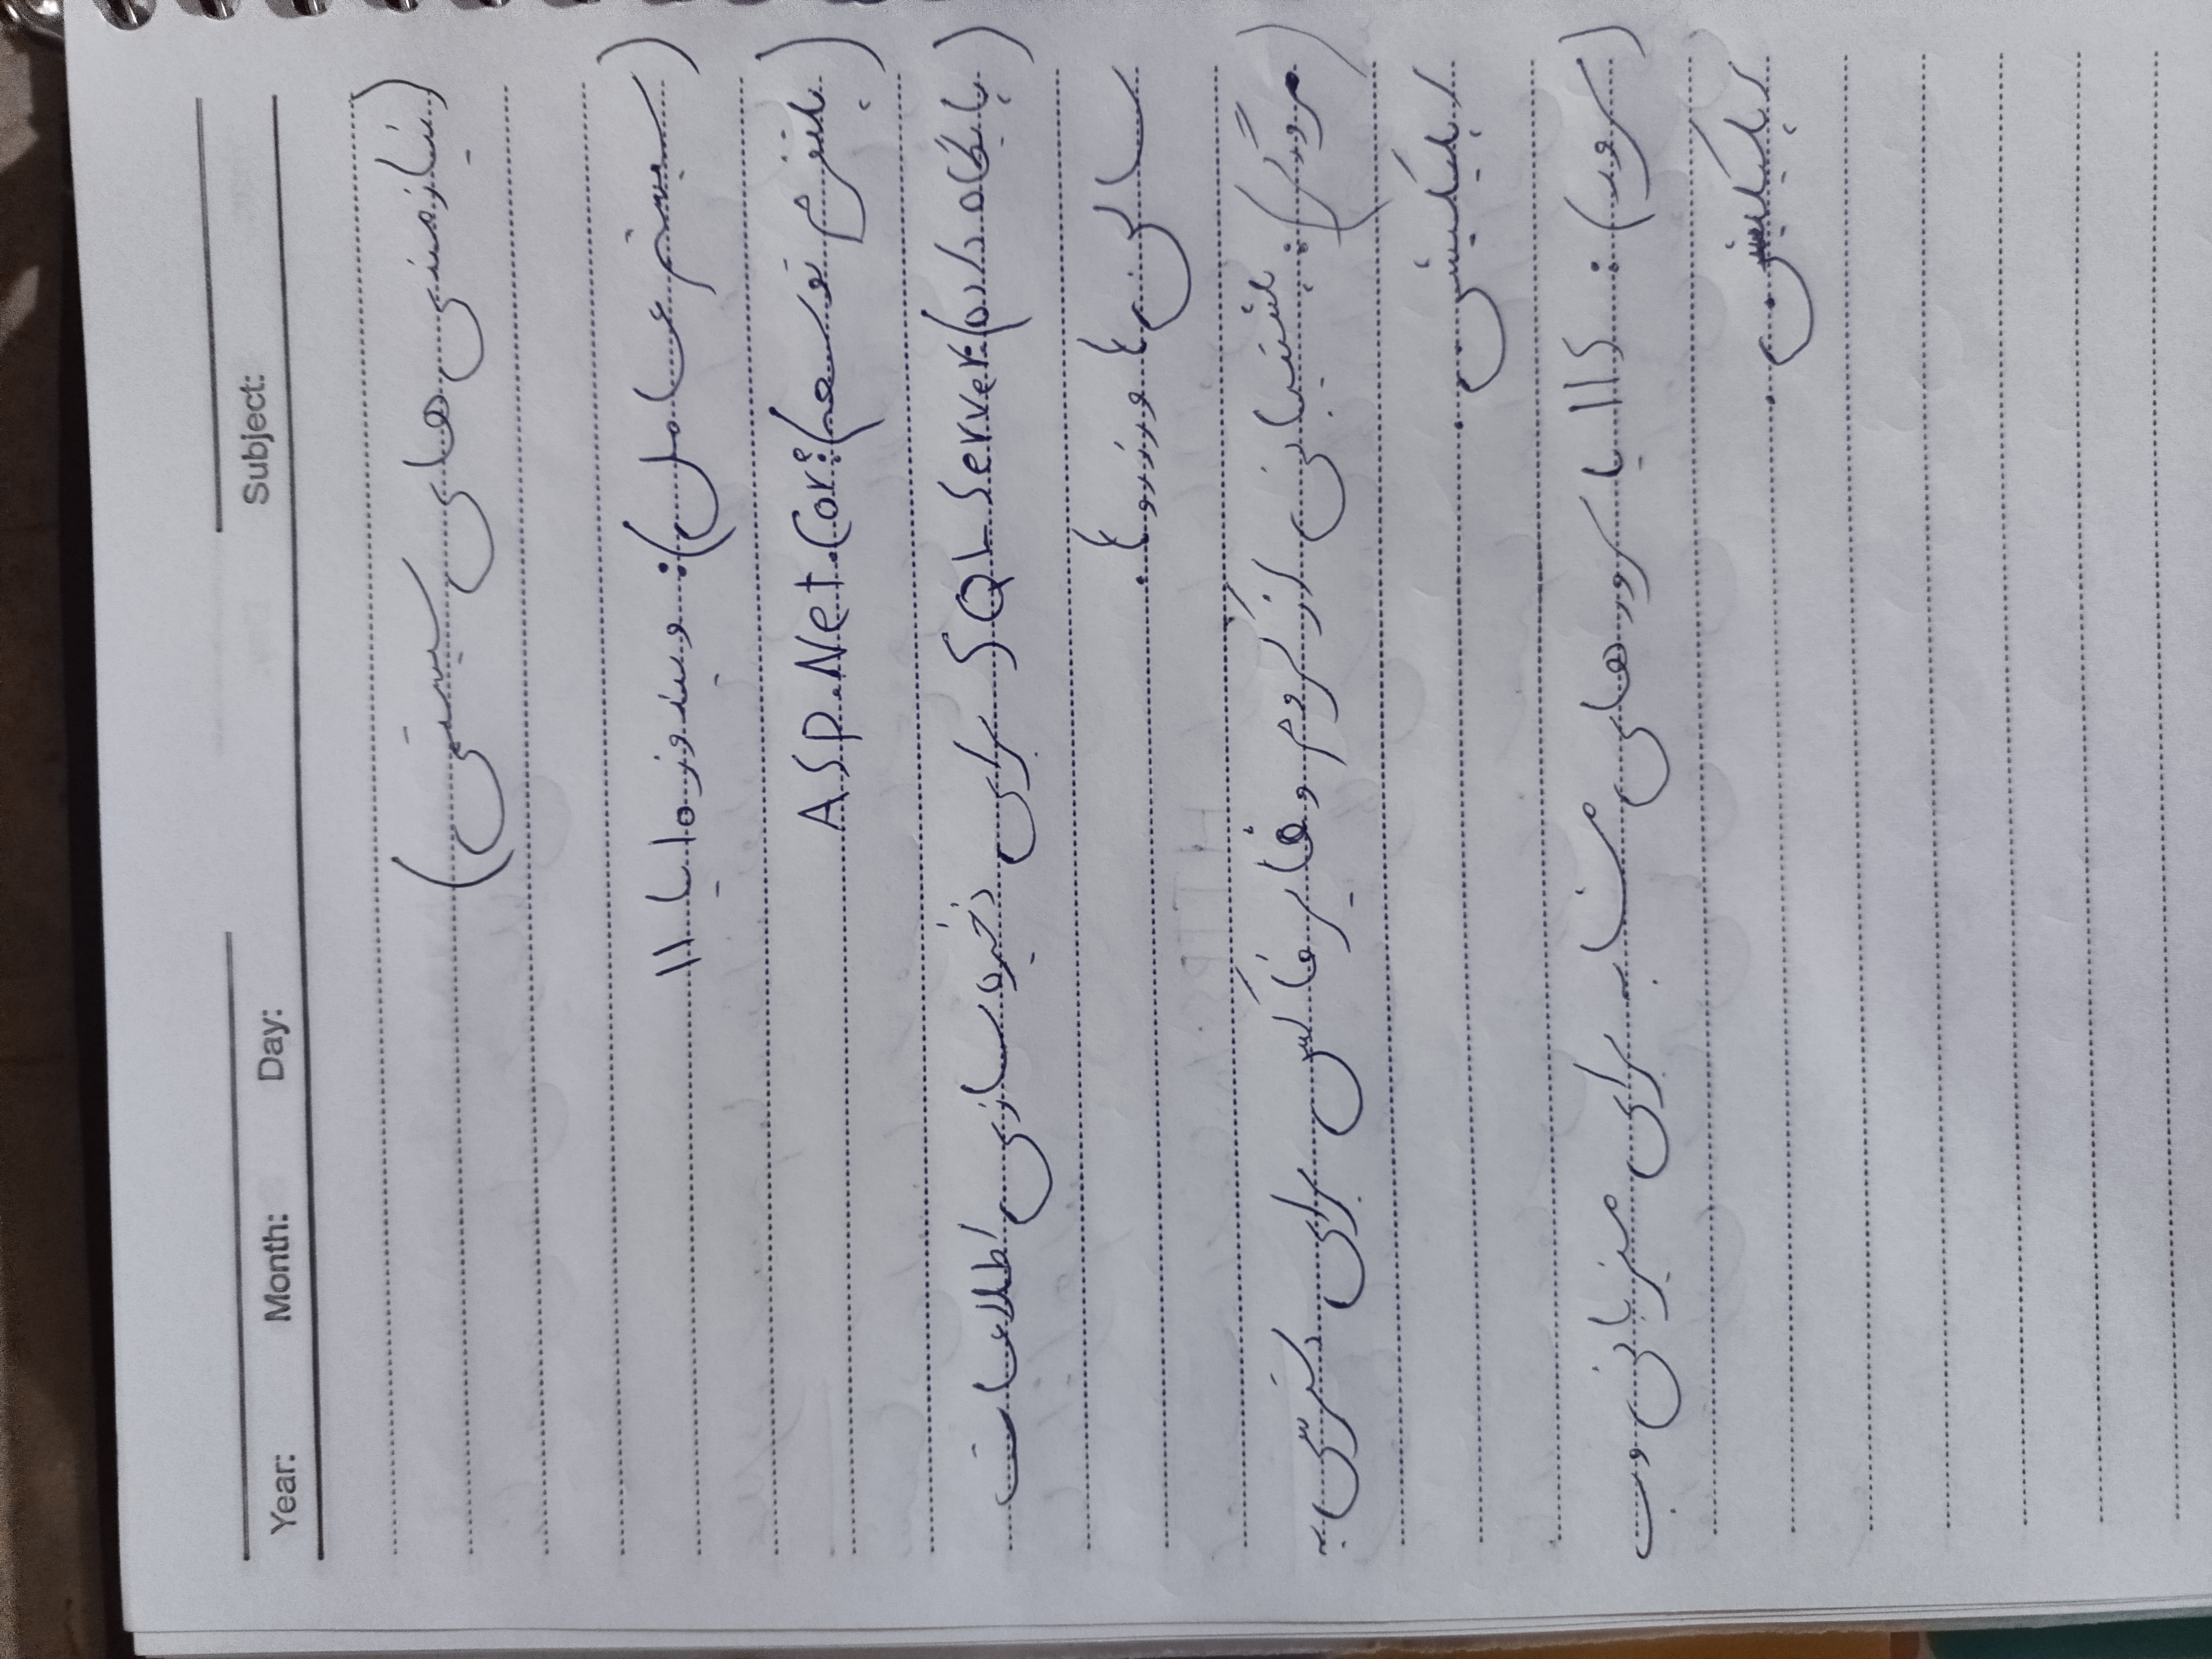 Year: Month: Day: Subject:
(نیازمندی های سیستمی)
(سیستم عامل): ویندوز 10 یا 11
(پلتفرم توسعه): ASP.Net.Core
(پایگاه داده): SQL Server برای ذخیره سازی اطلاعات
سالن ها و رزروها.
(مرورگر): پشتیبانی از کروم و فایرفاکس برای دسترسی به
اپلیکیشن.
(سرور): IIS یا سرورهای مشابه برای میزبانی وب
اپلیکیشن.